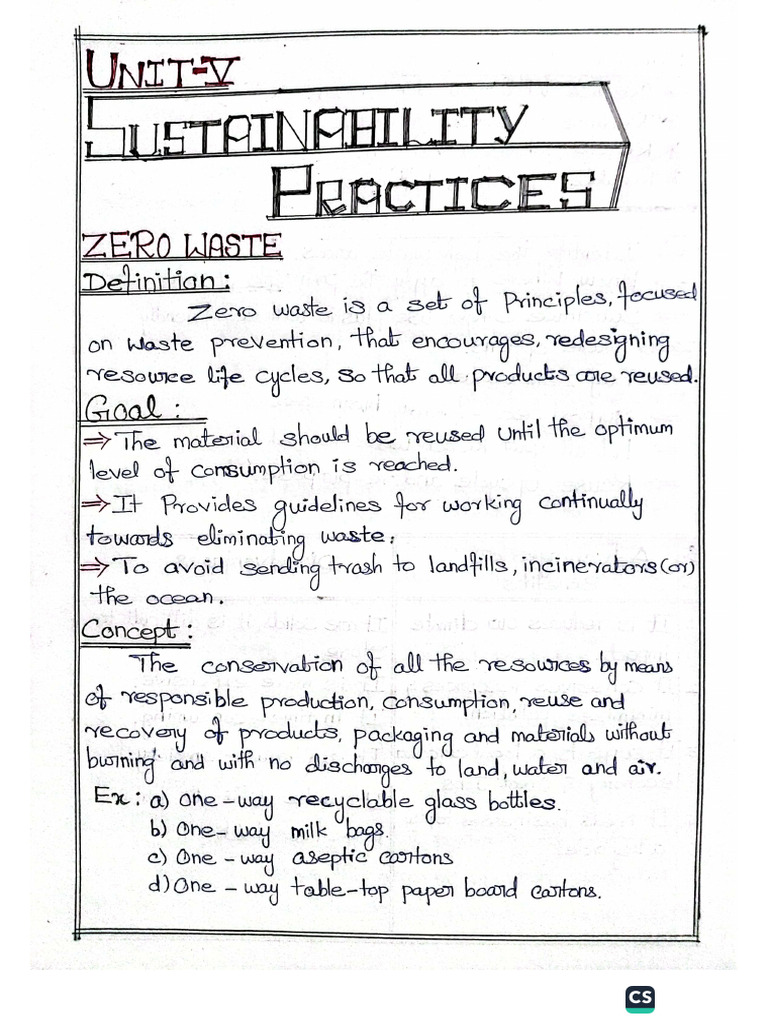 UNIT-V
SUSTAINABILITY
PRACTICES
ZERO WASTE
Definition:
Zero waste is a set of Principles, focused
on waste prevention, that encourages, redesigning
resource life cycles, so that all products are reused.
Goal:
⇒ The material should be reused until the optimum
level of consumption is reached.
⇒ It Provides guidelines for working continually
towards eliminating waste.
⇒ To avoid sending trash to landfills, incinerators (or)
the ocean.
Concept:
The conservation of all the resources by means
of responsible production, consumption, reuse and
recovery of products, packaging and materials without
burning and with no discharges to land, water and air.
Ex: a) One-way recyclable glass bottles.
b) One-way milk bags.
c) One-way aseptic cartons
d) One-way table-top paper board cartons.
CS